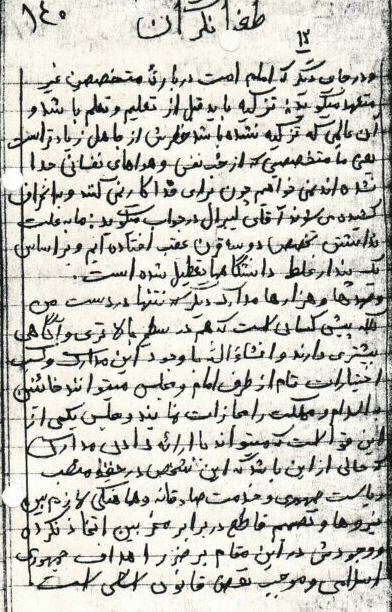 ۱۴۰
طغا نگران
۱۲
و در جای دیگر که امام امت درباره متخصصین غیر
متعهد میگوید: تزکیه باید قبل از تعلیم و تعلم باشد و
آن عالمی که تزکیه نشده باشد خطرش از جاهل زیادتر است
یعنی ما متخصصینی که از حب نفس و هواهای نفسانی جدا
نشده اند نمی خواهیم چون برای خدا کار نمی کنند و به انحراف
کشیده می شوند آقای لیبرال در جواب میگوید: ما به علت
نداشتن تخصص دو سه قرن عقب افتاده ایم و بر اساس
یک پندار غلط دانشگاهها تعطیل شده است.
و صدها و هزارها مدارک دیگر که نه تنها در دست من
بلکه پیش کسانی است که هم در سطح بالاتری و آگاهی
بیشتری دارند و انشاءالله با وجود این مدارک و کسب
اختیارات تام از طرف امام و مجلس میتوانند خائنین
به اسلام و مملکت را مجازات نمایند و مجلس یکی از
این قوا است که میتواند با ارائه دادن مدارک
که حاکی از این باشد که این شخص در حیطه منصب
ریاست جمهوری و خدمت صادقانه و هماهنگی لازم بین
نیروها و تصمیم قاطع در برابر مجرمین اتخاذ نکرده
و وجودش در این مقام بر ضرر اهداف جمهوری
اسلامی و موجب نقض قانون اساسی است.